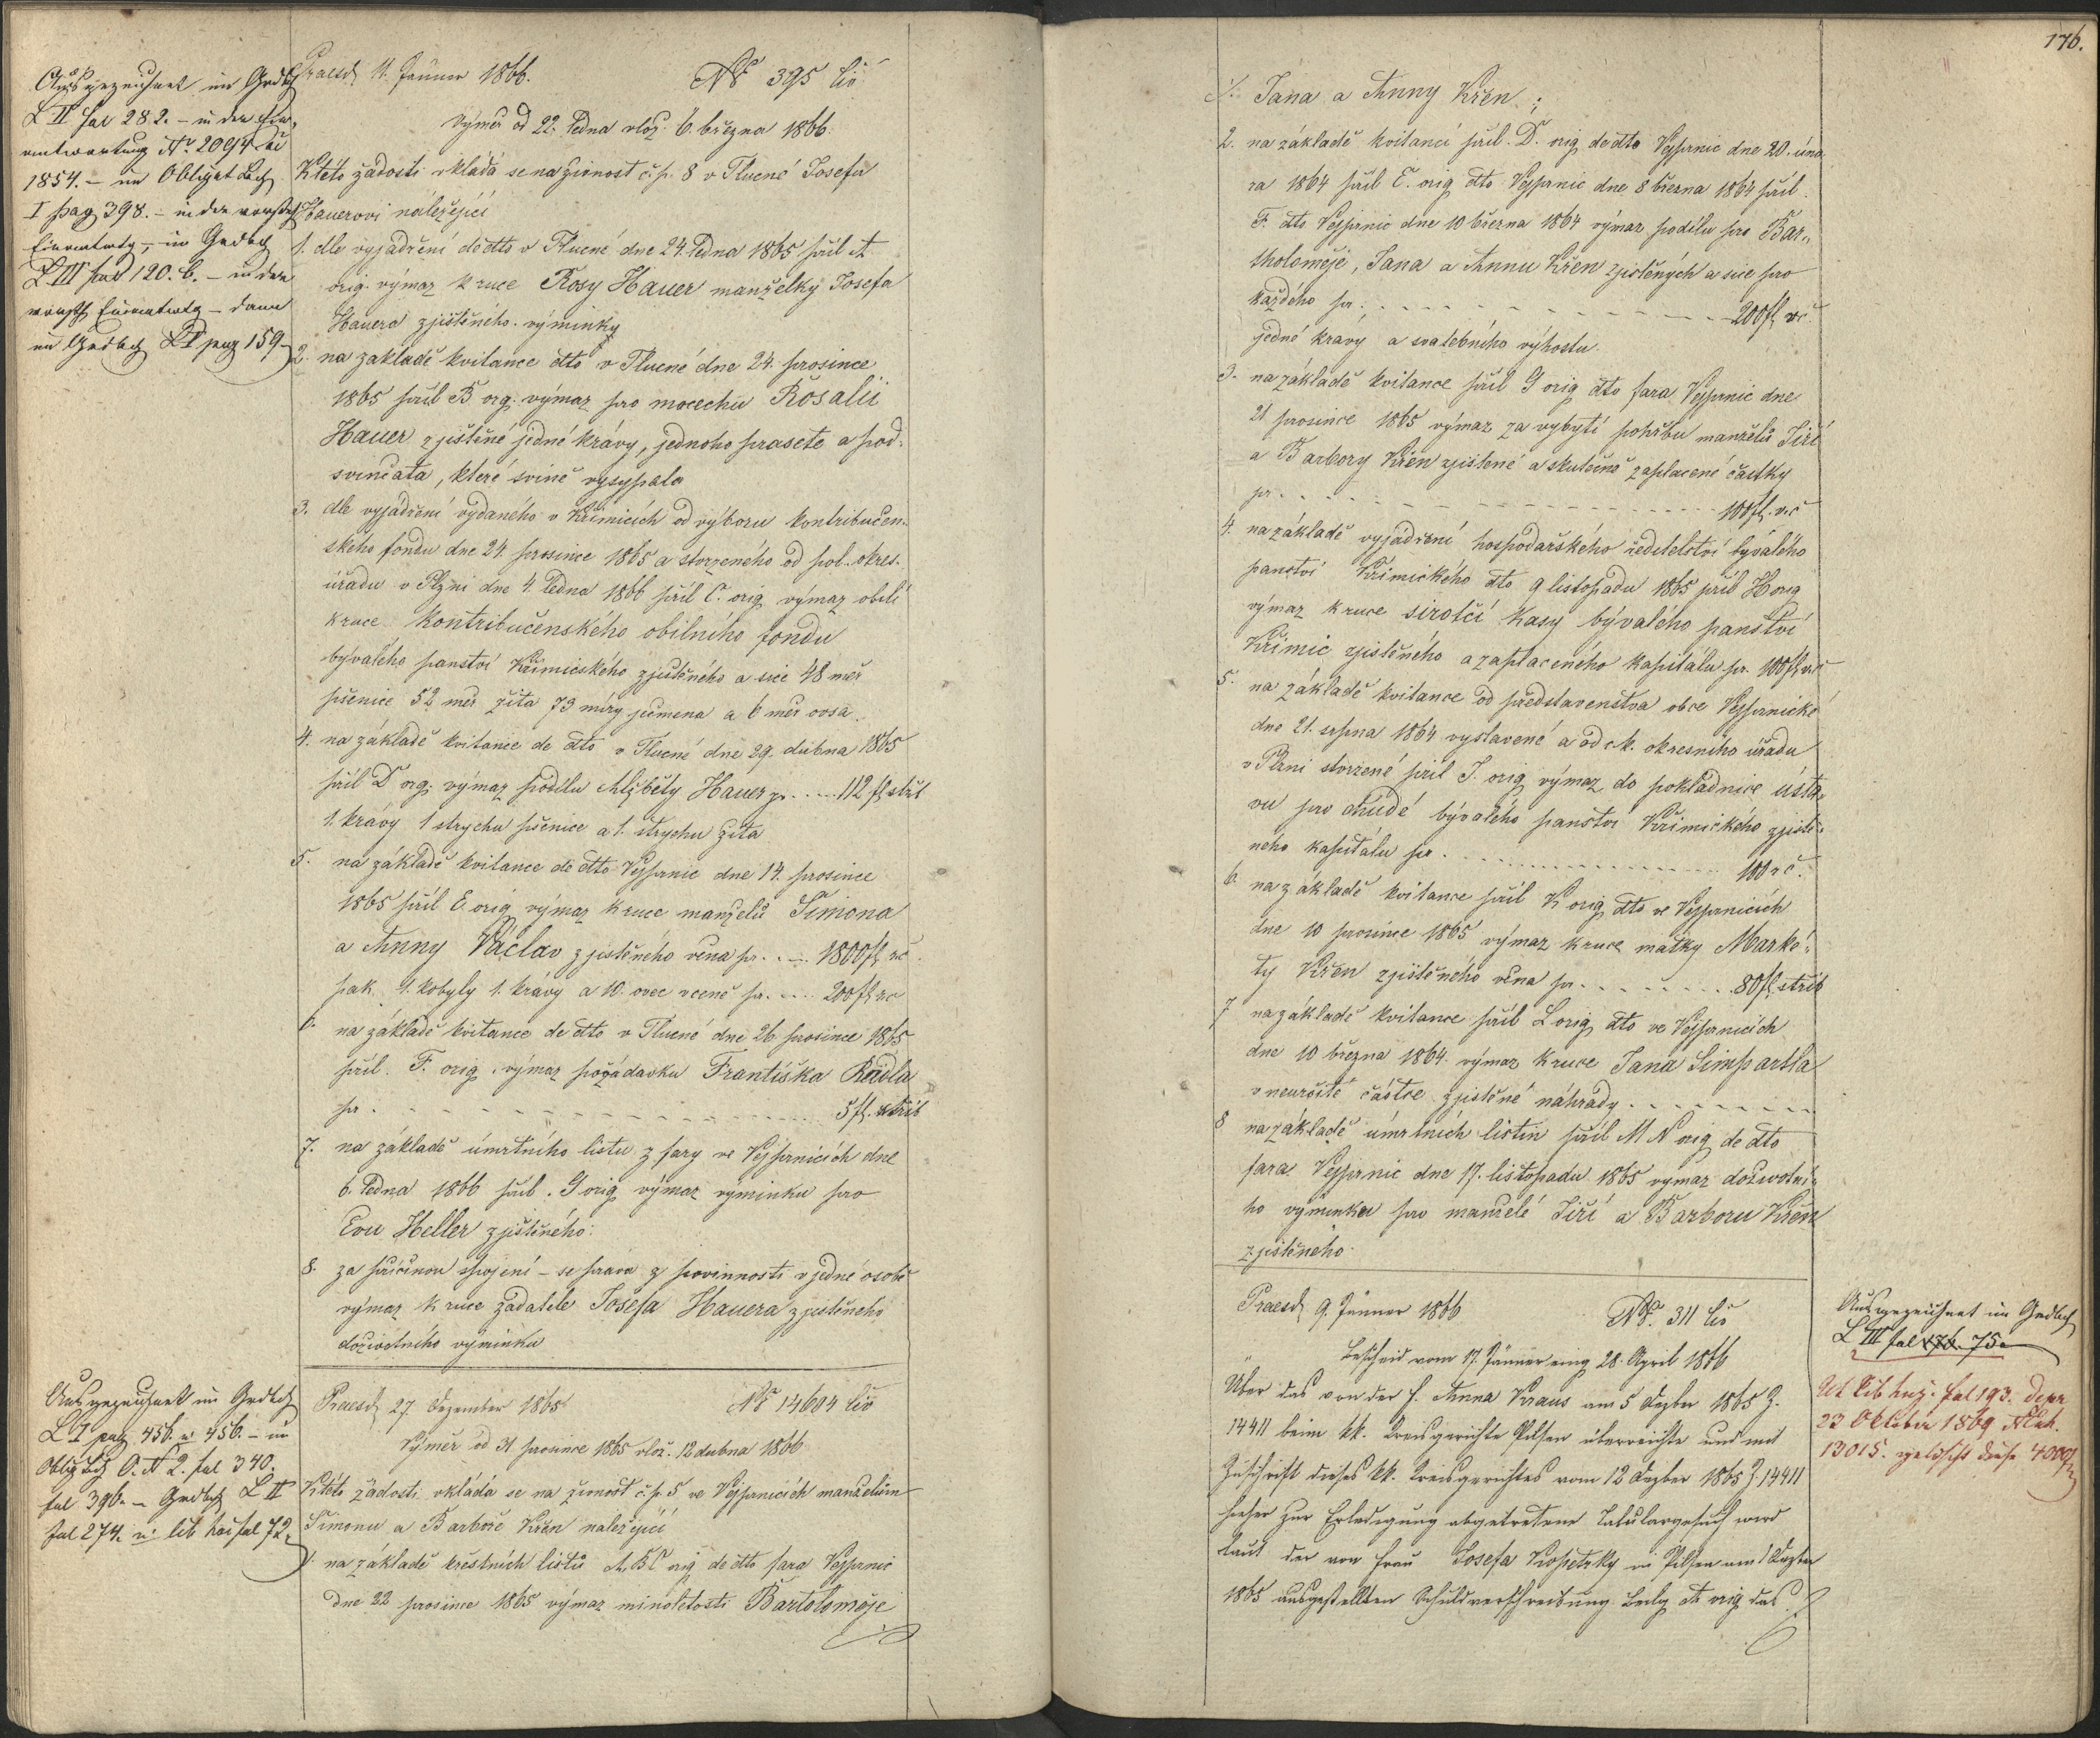 Ausgezeichnet im Grdbch
L II fol 282. – in der Ein-
antwortung No 2094 civ
1854. – im Obligat Bch
I pag 398. – in der vorsteh
Einantwtg – im Grdbch
L III fol 120. b. – in der
vorsteh Einantwtg – dann
im Grdbch L I pag 159 –
Praes 11. Jänner 1866. No 395 civ
Výměr od 22. ledna vlož. 6. března 1866.
K této žádosti vkládá se na živnost č. p. 8 v Tlucné Josefu
Hauerovi náležející
1. dle vyjádření de dtto v Tlucné dne 24. ledna 1865 příl A
orig. výmaz k ruce Rosy Hauer manželky Josefa
Hauera zjištěného výminky
2. na základě kvitance dtto v Tlucné dne 24. prosince
1865 příl B org. výmaz pro macechu Rosalii
Hauer zjištěné jedné krávy, jednoho prasete a pod-
svinčata, které svině vysypala
3. dle vyjádření vydaného v Křimicích od výboru kontribučen-
ského fondu dne 24. prosince 1865 a stvrzeného od pol. okres.
úřadu v Plzni dne 4. ledna 1866 příl C. orig výmaz obilí
k ruce Kontribučenského obilního fondu
bývalého panství Křimického zjištěného a sice 48 měr
pšenice 52 měr žita 73 míry ječmena a 6 měr ovsa.
4. na základě kvitance de dtto v Tlucné dne 29. dubna 1865
příl D org. výmaz podílu Alžběty Hauer pr. .... 112 fl stříb
1. krávy 1 strychu pšenice a 1. strychu žita
5. na základě kvitance de dtto Vejprnic dne 14. prosince
1865 příl E orig výmaz k ruce manželů Šimona
a Anny Václav zjištěného věna pr. .... 1800 fl rč
pak 1. kobyly 1. krávy a 10. ovec v ceně pr. .... 200 fl rč
6. na základě kvitance de dtto v Tlucné dne 26. prosince 1865
příl. F. orig. výmaz požádavku Františka Reidla
pr. ........ 5 fl. stříb
7. na základě úmrtního listu z fary ve Vejprnicích dne
6. ledna 1866 příl. G orig výmaz výminku pro
Evu Heller zjištěného.
8. za příčinou spojení – se práva z povinností v jedné osobě
výmaz k ruce žadatele Josefa Hauera zjištěného
doživotního výminku
Ausgezeichnet im Grdbch
L I pag 456. u. 456. – im
Oblig Bch O. A 2. fol 340.
fol 396. – Grdbch L II
fol 274. u. lib hoi fol 72.
Praes 27. Dezember 1865 No 14604 civ
Výměr od 31. prosince 1865 vlož. 12 dubna 1866
K této žádosti vkládá se na živnost č. p. 5 ve Vejprnicích manželům
Šimonu a Barboře Křen náležející
1. na základě křestních listů A, B C orig de dtto fara Vejprnic
dne 22 prosince 1865 výmaz minoletosti Bartoloměje
176.
Jana a Anny Křen;
2. na základě kvitancí příl. D. orig de dtto Vejprnic dne 20. úno-
ra 1864 příl E. orig dtto Vejprnic dne 8 března 1864 příl.
F. dtto Vejprnic dne 10 března 1864 výmaz podílu pro Bar-
tholoměje, Jana a Annu Křen zjištěných a sice pro
každého pr. ........ 200 fl rč.
jedné krávy a svatebního výhostu.
3. na základě kvitance příl G orig dtto fara Vejprnic dne
21 prosince 1865 výmaz za vybytí pohřbu manželů Jiří
a Barbory Křen zjištěné a skutečně zaplacené částky
pr. ........ 100 fl. rč
4. na základě vyjádření hospodářského ředitelství bývalého
panství Křimického dto 9 listopadu 1865 příl H orig
výmaz k ruce sirotčí Kasy bývalého panství
Křimic zjištěného a zaplaceného kapitálu pr. 100 fl rč
5. na základě kvitance od představenstva obce Vejprnické
dne 21. srpna 1864 vystavené a od c. k. okresního úřadu
v Plzni stvrzené příl J. orig výmaz do pokladnice ústa-
vu pro chudé bývalého panství Křimického zjiště-
ného kapitálu pr. ........ 100 rč.
6. na základě kvitance příl K orig dtto ve Vejprnicích
dne 10 prosince 1865 výmaz k ruce matky Marké-
ty Křen zjištěného věna pr. ........ 80 fl. stříb
7 na základě kvitance příl L orig dtto ve Vejprnicích
dne 10 března 1864. výmaz k ruce Jana Simpartla
v neurčité částce zjištěné náhrady. ........
8 na základě úmrtních listin příl M N orig de dtto
fara Vejprnic dne 17. listopadu 1865 výmaz doživotní-
ho výminku pro manželé Jiří a Barboru Křen
zjištěného.
Praes 9. Jänner 1866 No. 311 civ
Bescheid vom 17. Jänner eing 28. April 1866
Über das von der F. Anna Kraus am 5 Dezber 1865 Z.
14411 beim kk. Kreisgerichte Pilsen überreichte und mit
Zuschrift dieses kk. Kreisgerichtes vom 12 Dezber 1865 Z. 14411
hieher zur Erledigung abgetretene Tabulargesuch wird
laut der von Frau Josefa in Pilsen am 1 Dezber
1865 ausgestellten Schuldverschreibung Beilg A orig das
Ausgezeichnet im Grdbch
L III fol 176. 75.
lib huj. fol 193. depr
23 Oktober 1869
13015. gelöscht diese 4000 fl